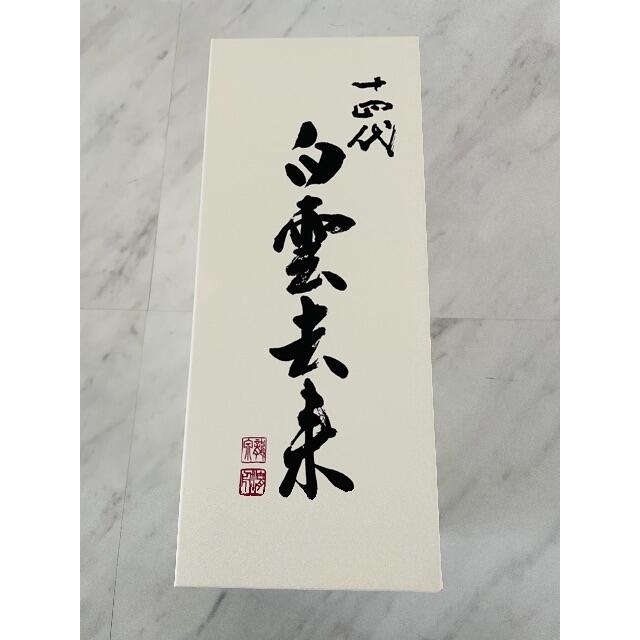 十四代
白雲去来